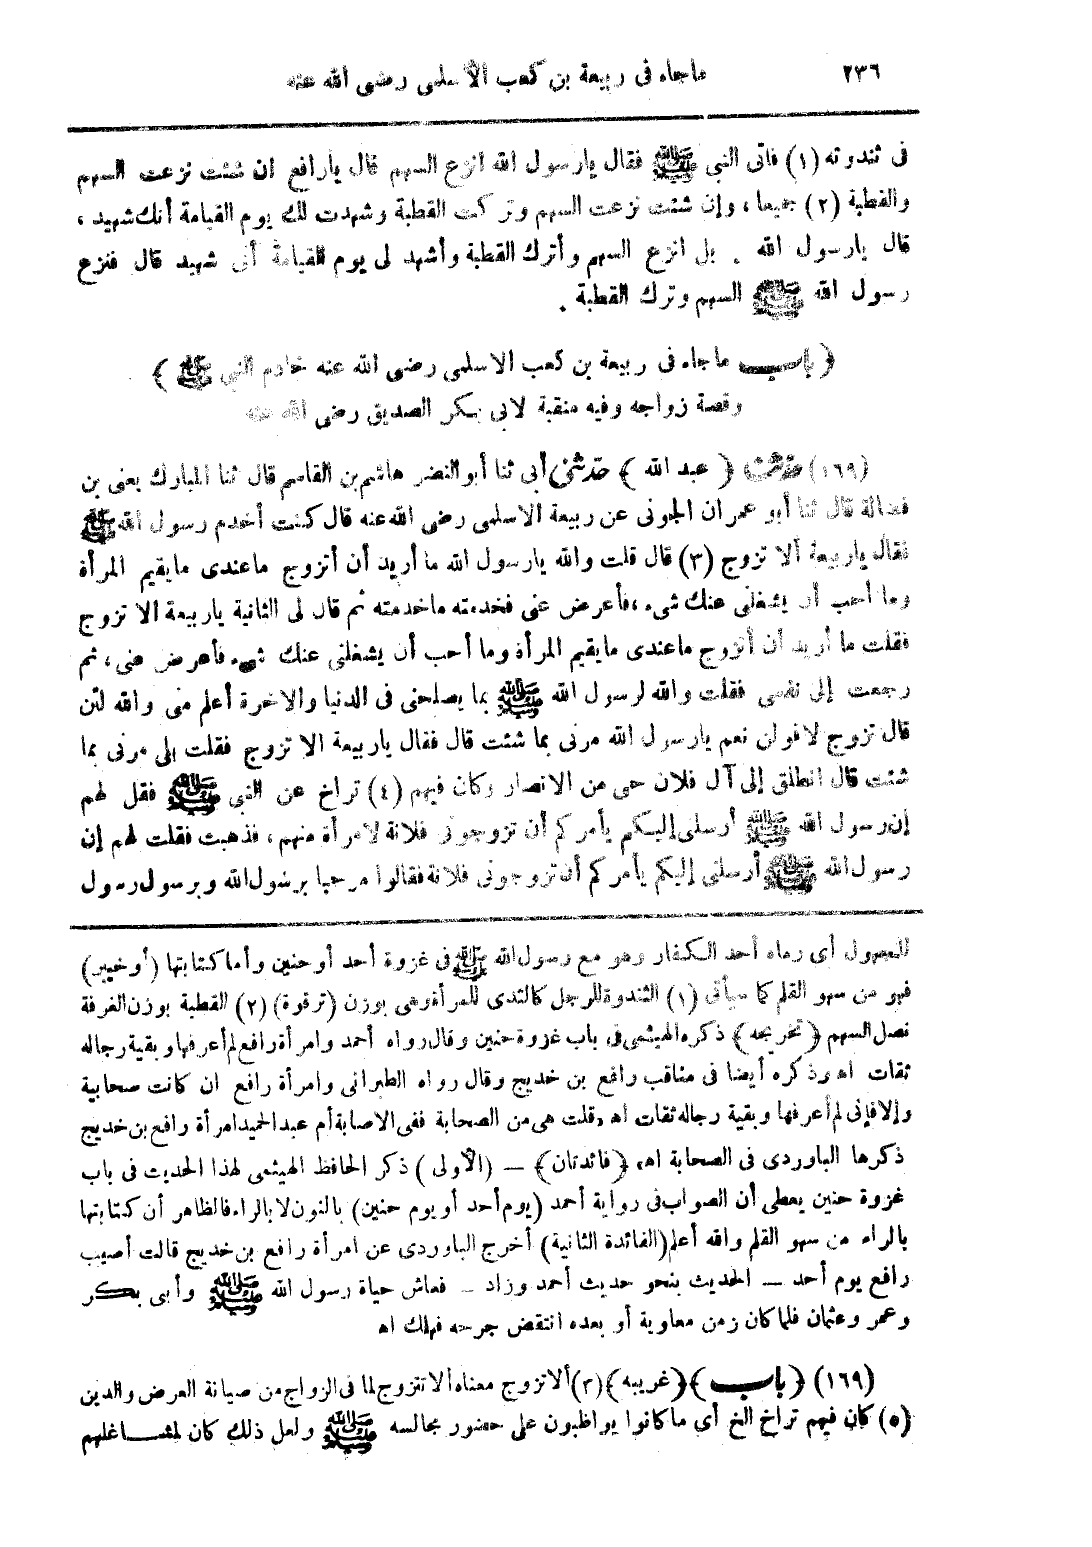 ٢٣٦ ماجاء فى ربيعة بن كعب الأسلمى رضى الله عنه
فى ثندوته (١) فاتى النبى ﷺ فقال يارسول الله انزع السهم قال يارافع ان شئت نزعت السهم
والقطبة (٢) جميعا ، وإن شئت نزعت السهم وتركت القطبة وشهدت لك يوم القيامة أنك شهيد ،
قال يارسول الله . بل انزع السهم وأترك القطبة وأشهد لى يوم القيامة أنى شهيد قال فنزع
رسول الله ﷺ السهم وترك القطبة .
﴿ باب ماجاء فى ربيعة بن كعب الاسلمى رضى الله عنه خادم النبى ﷺ ﴾
وقصة زواجه وفيه منقبة لابى بكر الصديق رضى الله عنه
(١٦٩) حدثنا ﴿ عبد الله ﴾ حدثنى أبى ثنا أبوالنضر هاشم بن القاسم قال ثنا المبارك يعنى بن
فضالة قال ثنا أبو عمران الجونى عن ربيعة الاسلمى رضى الله عنه قال كنت أخدم رسول الله ﷺ
فقال ياربيعة ألا تزوج (٣) قال قلت والله يارسول الله ما أريد أن أتزوج ماعندى مايقيم المرأة
وما أحب أن يشغلنى عنك شىء ، فأعرض عنى فخدمته ماخدمته ثم قال لى الثانية ياربيعة الا تزوج
فقلت ما أريد أن أتزوج ماعندى مايقيم المرأة وما أحب أن يشغلنى عنك شىء فأعرض عنى ، ثم
رجعت إلى نفسى فقلت والله لرسول الله ﷺ بما يصلحنى فى الدنيا والاخرة أعلم منى والله لئن
قال تزوج لاقولن نعم يارسول الله مرنى بما شئت قال فقال ياربيعة الا تزوج فقلت بلى مرنى بما
شئت قال انطلق إلى آل فلان حى من الانصار وكان فيهم (٤) تراخ عن النبى ﷺ فقل لهم
إن رسول الله ﷺ أرسلنى إليكم يأمركم أن تزوجونى فلانة لامرأة منهم ، فذهبت فقلت لهم إن
رسول الله ﷺ أرسلنى إليكم يأمركم أن تزوجونى فلانة فقالوا مرحبا برسول الله وبرسول رسول
للمجهول أى رماه أحد الكفار وهو مع رسول الله ﷺ فى غزوة أحد أوحنين وأما كتابتها (أوخيبر)
فهو من سهو القلم كما سيأتى (١) الثندوة للرجل كالثدى للمرأة وهى بوزن (ترقوة) (٢) القطبة بوزن الغرفة
نصل السهم ﴿ تخريجه ﴾ ذكره الهيثمى فى باب غزوة حنين وقال رواه أحمد وامرأة رافع لم أعرفها وبقية رجاله
ثقات اه وذكره أيضا فى مناقب رافع بن خديج وقال رواه الطبرانى وامرأة رافع ان كانت صحابية
وإلا فإنى لم أعرفها وبقية رجاله ثقات اه وقلت هى من الصحابة ففى الاصابة أم عبدالحميد امرأة رافع بن خديج
ذكرها الباوردى فى الصحابة اه ﴿فائدتان﴾ — (الأولى) ذكر الحافظ الهيثمى لهذا الحديث فى باب
غزوة حنين يعطى أن الصواب فى رواية أحمد (يوم أحد أو يوم حنين) بالنون لا بالراء فالظاهر أن كتابتها
بالراء من سهو القلم والله أعلم (الفائدة الثانية) أخرج الباوردى عن امرأة رافع بن خديج قالت أصيب
رافع يوم أحد — الحديث بنحو حديث أحمد وزاد — فعاش حياة رسول الله ﷺ وأبى بكر
وعمر وعثمان فلما كان زمن معاوية أو بعده انتقض جرحه فهلك اه
(١٦٩) ﴿ باب ﴾ ﴿غريبه﴾ (٣) ألا تزوج معناه ألا تتزوج لما فى الزواج من صيانة العرض والدين
(٥) كان فيهم تراخ الخ أى ما كانوا يواظبون على حضور مجالسه ﷺ ولعل ذلك كان لمشاغلهم